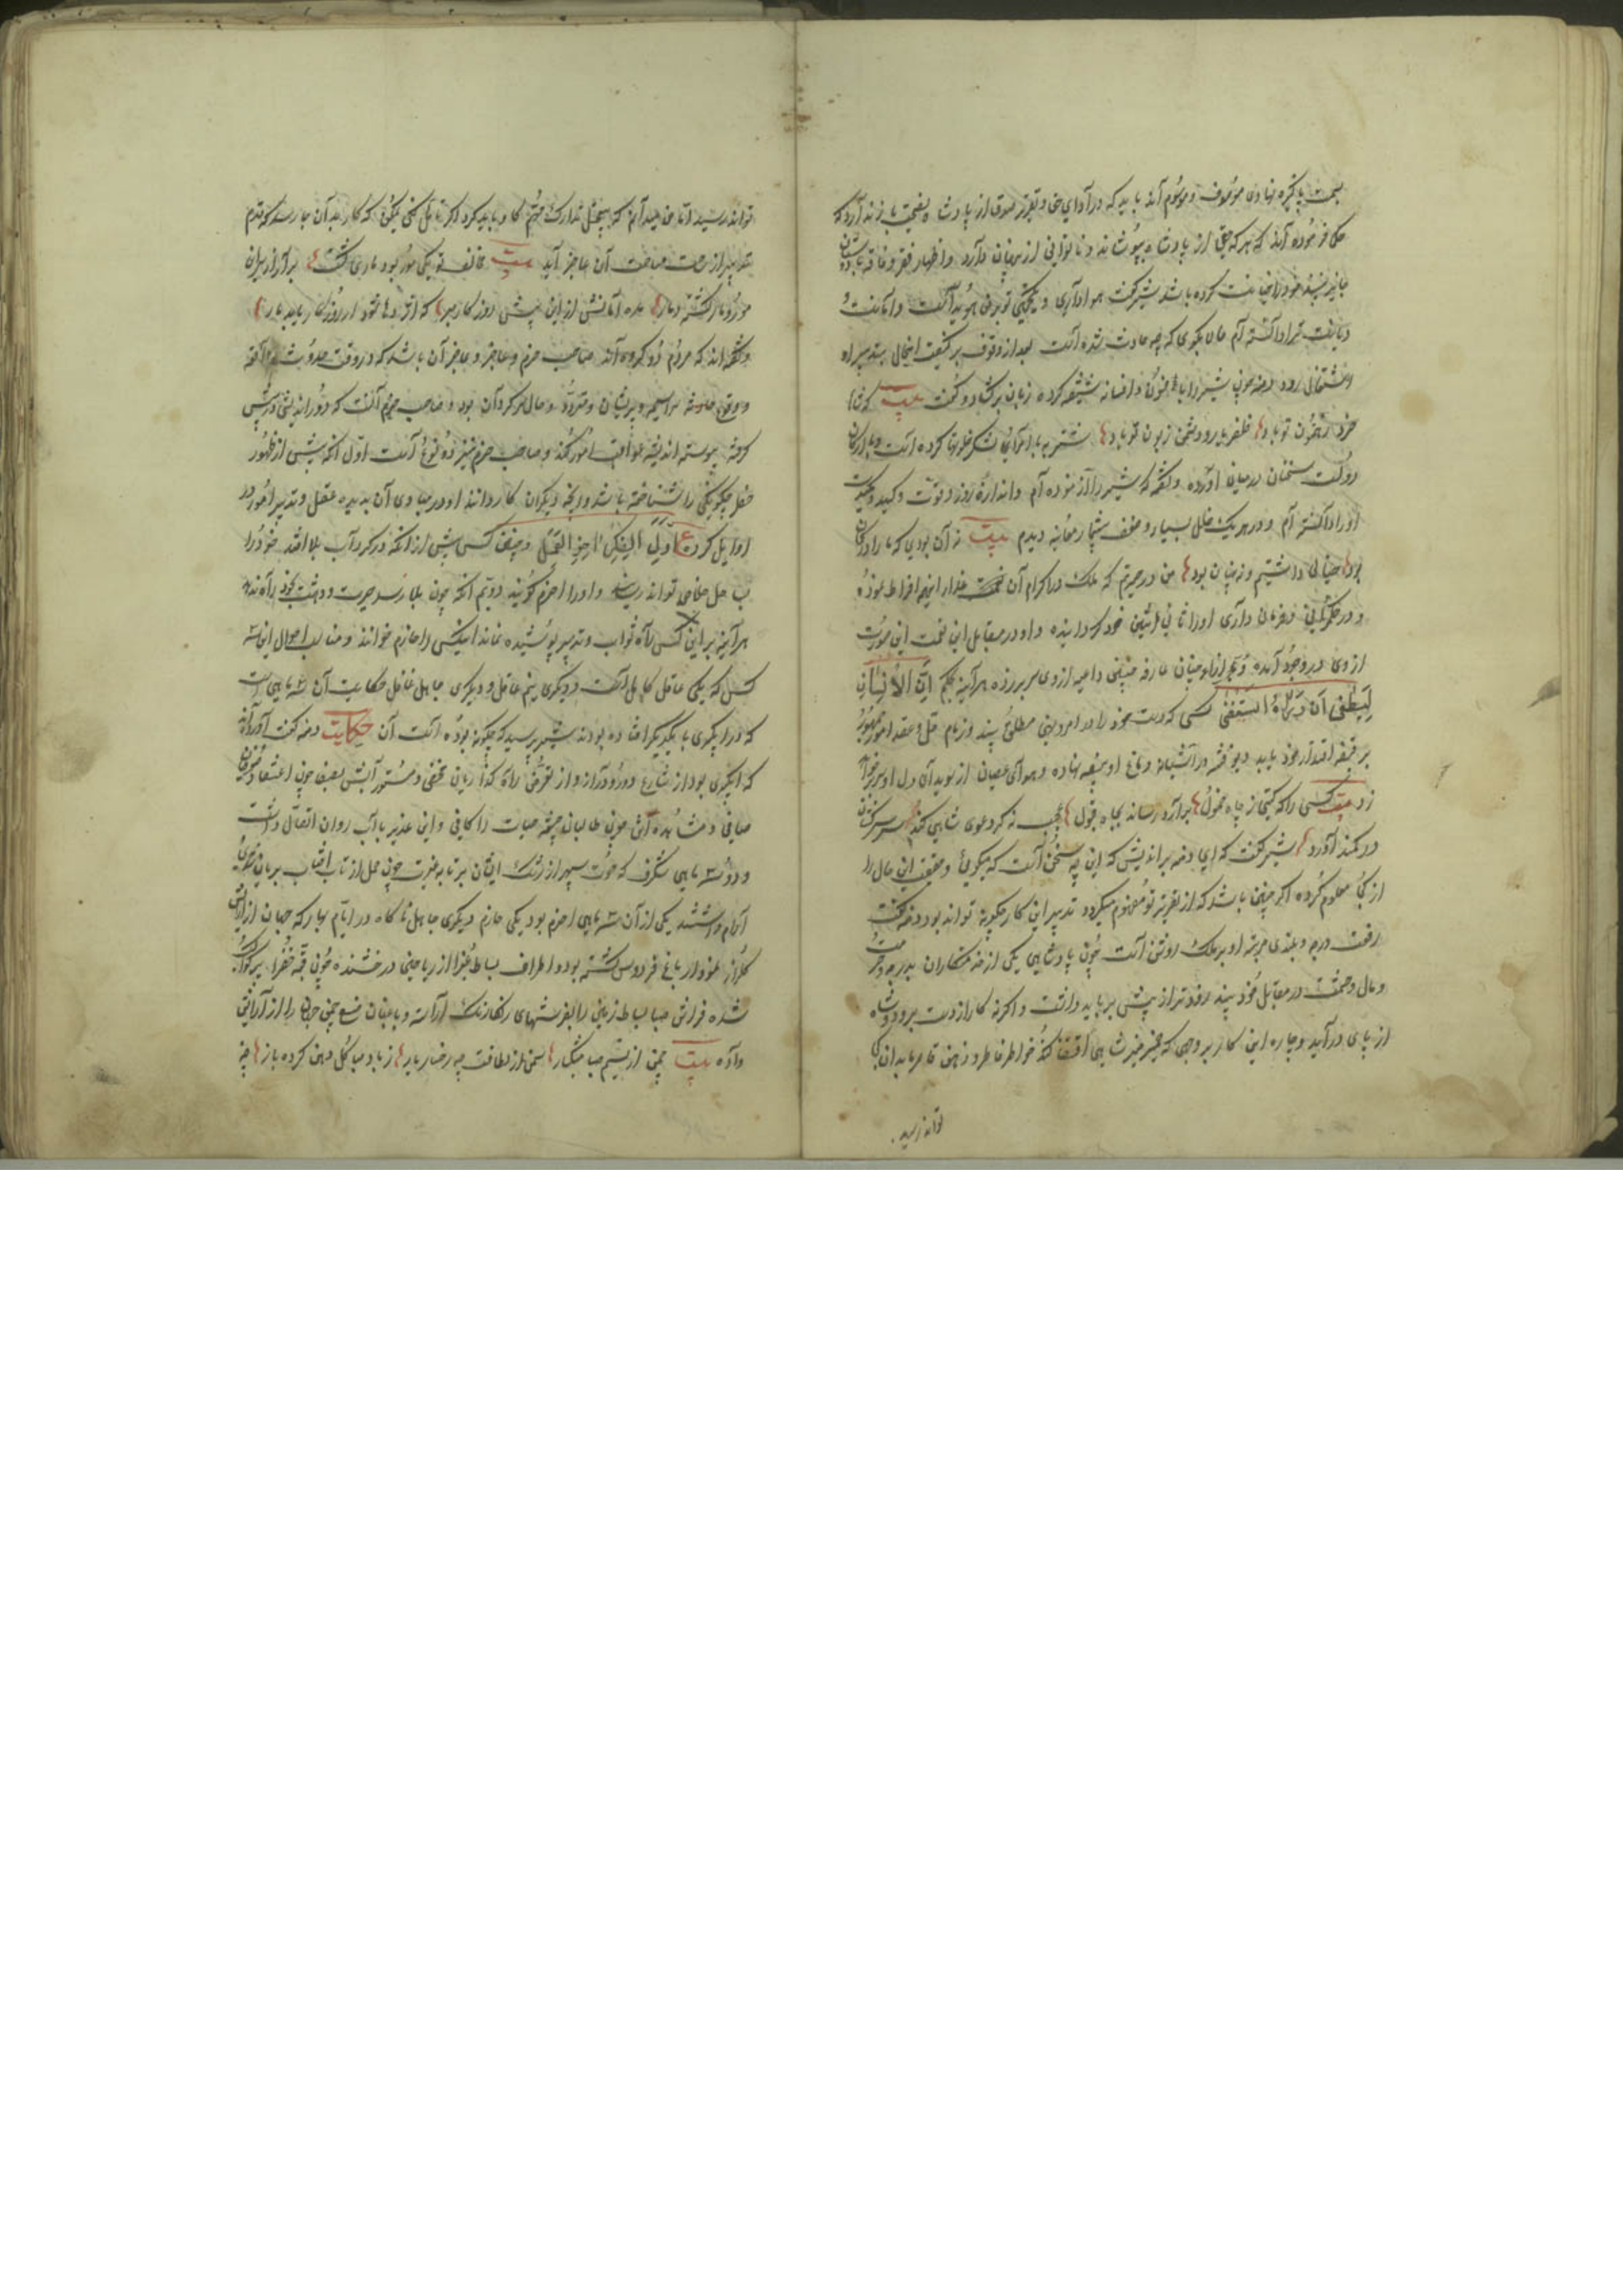 بسمت پاکیزه نهادی موصوف و موسوم آند باید که در آدای حق و تقریر صدق از پادشاه نصیحت باز ندارد که
حکما فرموده آند که هر که حق از پادشاه بپوشاند و ناتوانی از طبیبان دارد و اظهار فقر و فاقه با دوستان
جایز نبیند خود را خیانت کرده باشد شیر گفت هواداری و یکجهتی تو بر من هویداست و امانت
و دیانت ترا دانسته آم حالا بگوی که چه حادث شده است بعد از وقوف بر کیفیت آن حال بتدبیر او
اشتغال رود دمنه چون شیر را بافسون و افسانه شیفته کرد زبان برگشاد و گفت بیت که شاها
خرد رهنمون تو باد ظفر یار و دشمن زبون تو باد شنزبه با امرای لشکر خلوتها کرده است و با ارکان
دولت سخنان درمیان آورده و گفته که شیر را آزموده آم و اندازه زور و قوت و کید و مکیدت
او را دانسته آم و در هر یک خلل بسیار و ضعف بیشمار معاینه دیدم بیت نه آن بود که ما را در گمان
بود خیالی داشتیم و نه چنان بود من در حیرتم که ملک در اکرام آن غدار این همه افراط نموده
و در حکم و فرمان داری او را ثانی اثنین خود گردانیده و او در مقابل این نعمت این صورت
از وی در وجود آمده و از میان عارفه چنین داعیه از وی سر برزده هر آینه بحکم اِنَّ الاِنسان
لَیَطغی اَن رَآهُ استَغنی کسی که دست خود را در امر و نهی مطلق بیند و زمام حل و عقد امور جمهور
بر قبضه اقتدار خود یابد دیو فتنه در آشیانه دماغ او بیضه نهاده و هوای عصیان از سویدای دل او سر برخواهد
زد بیت کسی را که گیتی ز چاه خمول برآرد رساند بجاه قبول عجب نه گر دعوی شاهی کند سر سرکشان
در کمند آورد شیر گفت که ای دمنه براندیش که این چه سخن است که میگویی و حقیقت این حال را
از کجا معلوم کرده اگر چنین باشد که از تقریر تو مفهوم میگردد تدبیر این کار چگونه تواند بود دمنه گفت
رفعت درجه و بلندی مرتبه او بر ملک روشن است چون پادشاهی یکی از خدمتکاران بدرجه و حرمت
و مال و حشمت در مقابل خود بیند زودتر از پیش برباید داشت و اگرنه کار از دست برود و شاه
از پای درآید و چاره این کار بر وجهی که ضمیر منیر شاهی اقتضا کند خواطر فاطر و ذهن قاصر ما بدان کی
تواند رسید
تواند رسید اما من میدانم که بتعجیل تدارک مهم گاو باید کرد اگر تأمل کنی یمکن که کار بدان جا رسد که قدم
تدبیر از مساحت آن عاجز آید بیت مخالف تو یکی مور بود ماری گشت برآر از سر آن
مور مار گشته دمار مده امانش ازین پیش و روزگار مبر که اژدها شود ار روزگار یابد مار
و گفته اند که مردم دو گروه آند صاحب حزم و عاجز و عاجز آن باشد که در وقت حدوث واقعه
و وقوع حادثه سراسیمه و پریشان و متردد و حال سرگردان بود و صاحب حزم آنست که دوراندیشی در پیش
گرفته پیوسته اندیشه عواقب امور کند و صاحب حزم نیز دو نوع است اول آنکه پیش از ظهور
خطر چگونگی را شناخته باشد و آنچه دیگران کار دانند او در مبادی آن بدیده عقل و تدبیر امور در
اوایل کرده ع اَوَّلُ الفِکر آخِرُ العَمَل و چنین کس پیش از آنکه در گرداب بلا افتد خود را
ب حل خلاص تواند رسانید و او را احزم گویند دویم آنکه چون بلا رسد حیرت و دهشت بخود راه ندهد
هر آینه بر این کس راه ثواب و تدبیر پوشیده نماند اینکس را حازم خوانند و مناسب احوال این سه
کس که یکی عاقل کامل است و دیگری نیم عاقل و دیگری جاهل غافل حکایت آن سه ماهی است
که در آبگیری با یکدیگر افتاده بودند شیر پرسید که چگونه بوده است آن حکایت دمنه گفت آورده اند
که آبگیری بود از شارع دور و دراز و از تعرض راه گذاریان مخفی و مستور آبش بصفت چون اعتقاد صوفیان
صافی و مشاهده آن چون طالبان چشمه حیات را کافی و این غدیر با آب روان اتصال داشت
و درو سه ماهی شگرف که حوت سپهر از رشک ایشان بر تابه غیرت چون حمل از تاب آفتاب بریان شدی
آرام داشتند یکی از آن سه ماهی احزم بود یکی حازم دیگری جاهل ناگاه در ایام بهار که جهان از آرایش
گلزار نمودار باغ فردوس گشته بود و اطراف بساط غبرا از ریاحین درخشنده چون قبه خضرا پر کواکب
شده فراش صبا بساط زمین را بفرشهای رنگارنگ آراسته و باغبان صنع چمن جهان را از آرایش
داده بیت چمن از نسیم صبا مشکبار سمن از لطافت چو رخسار یار ز باد صبا گل دهن کرده باز چه